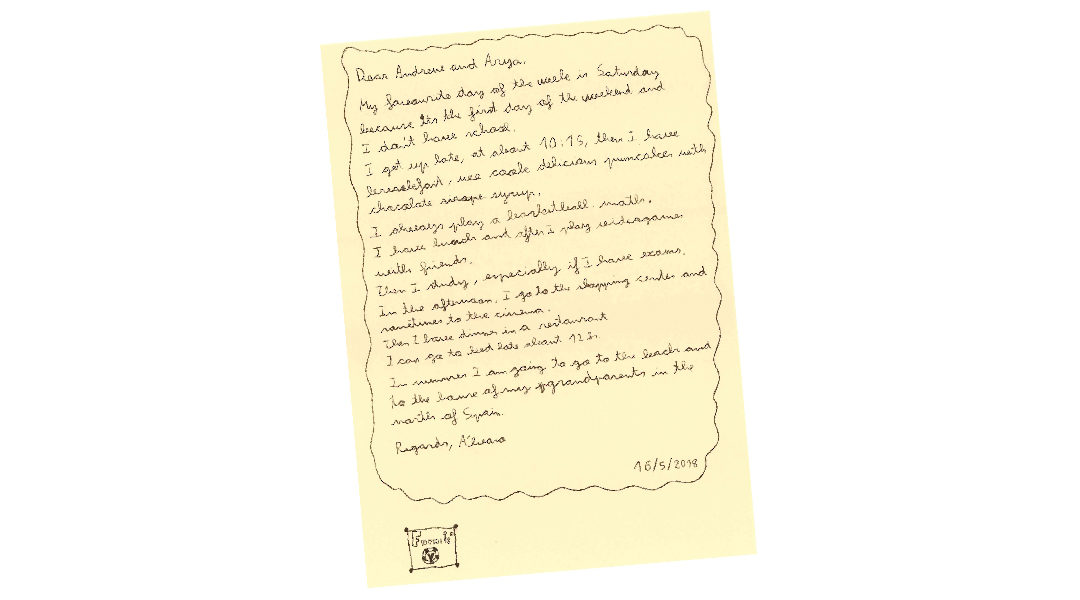 Dear Andreve and Arya.
My favourite day of the week is Saturday
because Its the first day of the weekend and
I don't have school.
I get up late, at about 10:15, then I have
breakfast, we cook delicious puncakes with
chocolate sirope syrup.
I always play a basketball math.
I have lunch and after I play videogames
with friends.
Then I study, especially if I have exams.
In the afternoon, I go to the shopping center and
sometimes to the cinema.
Then I have dinner in a restaurant
I can go to bed late about 12h.
In summer I am going to go to the beach and
to the house of my grandparents in the
north of Spain.
Regards, Álvaro
16/5/2018